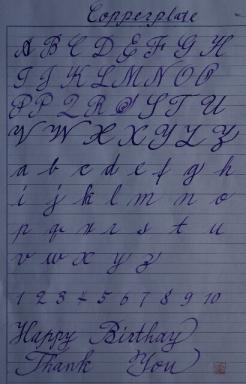 Copperplate
A B C D E F G H
I J K L M N O P
P P Q R & S T U
V W X X Y Z Z
a b c d e f g h
i j k l m n o
p q r r s t u
v w x y z
1 2 3 4 5 6 7 8 9 10
Happy Birthay
Thank You